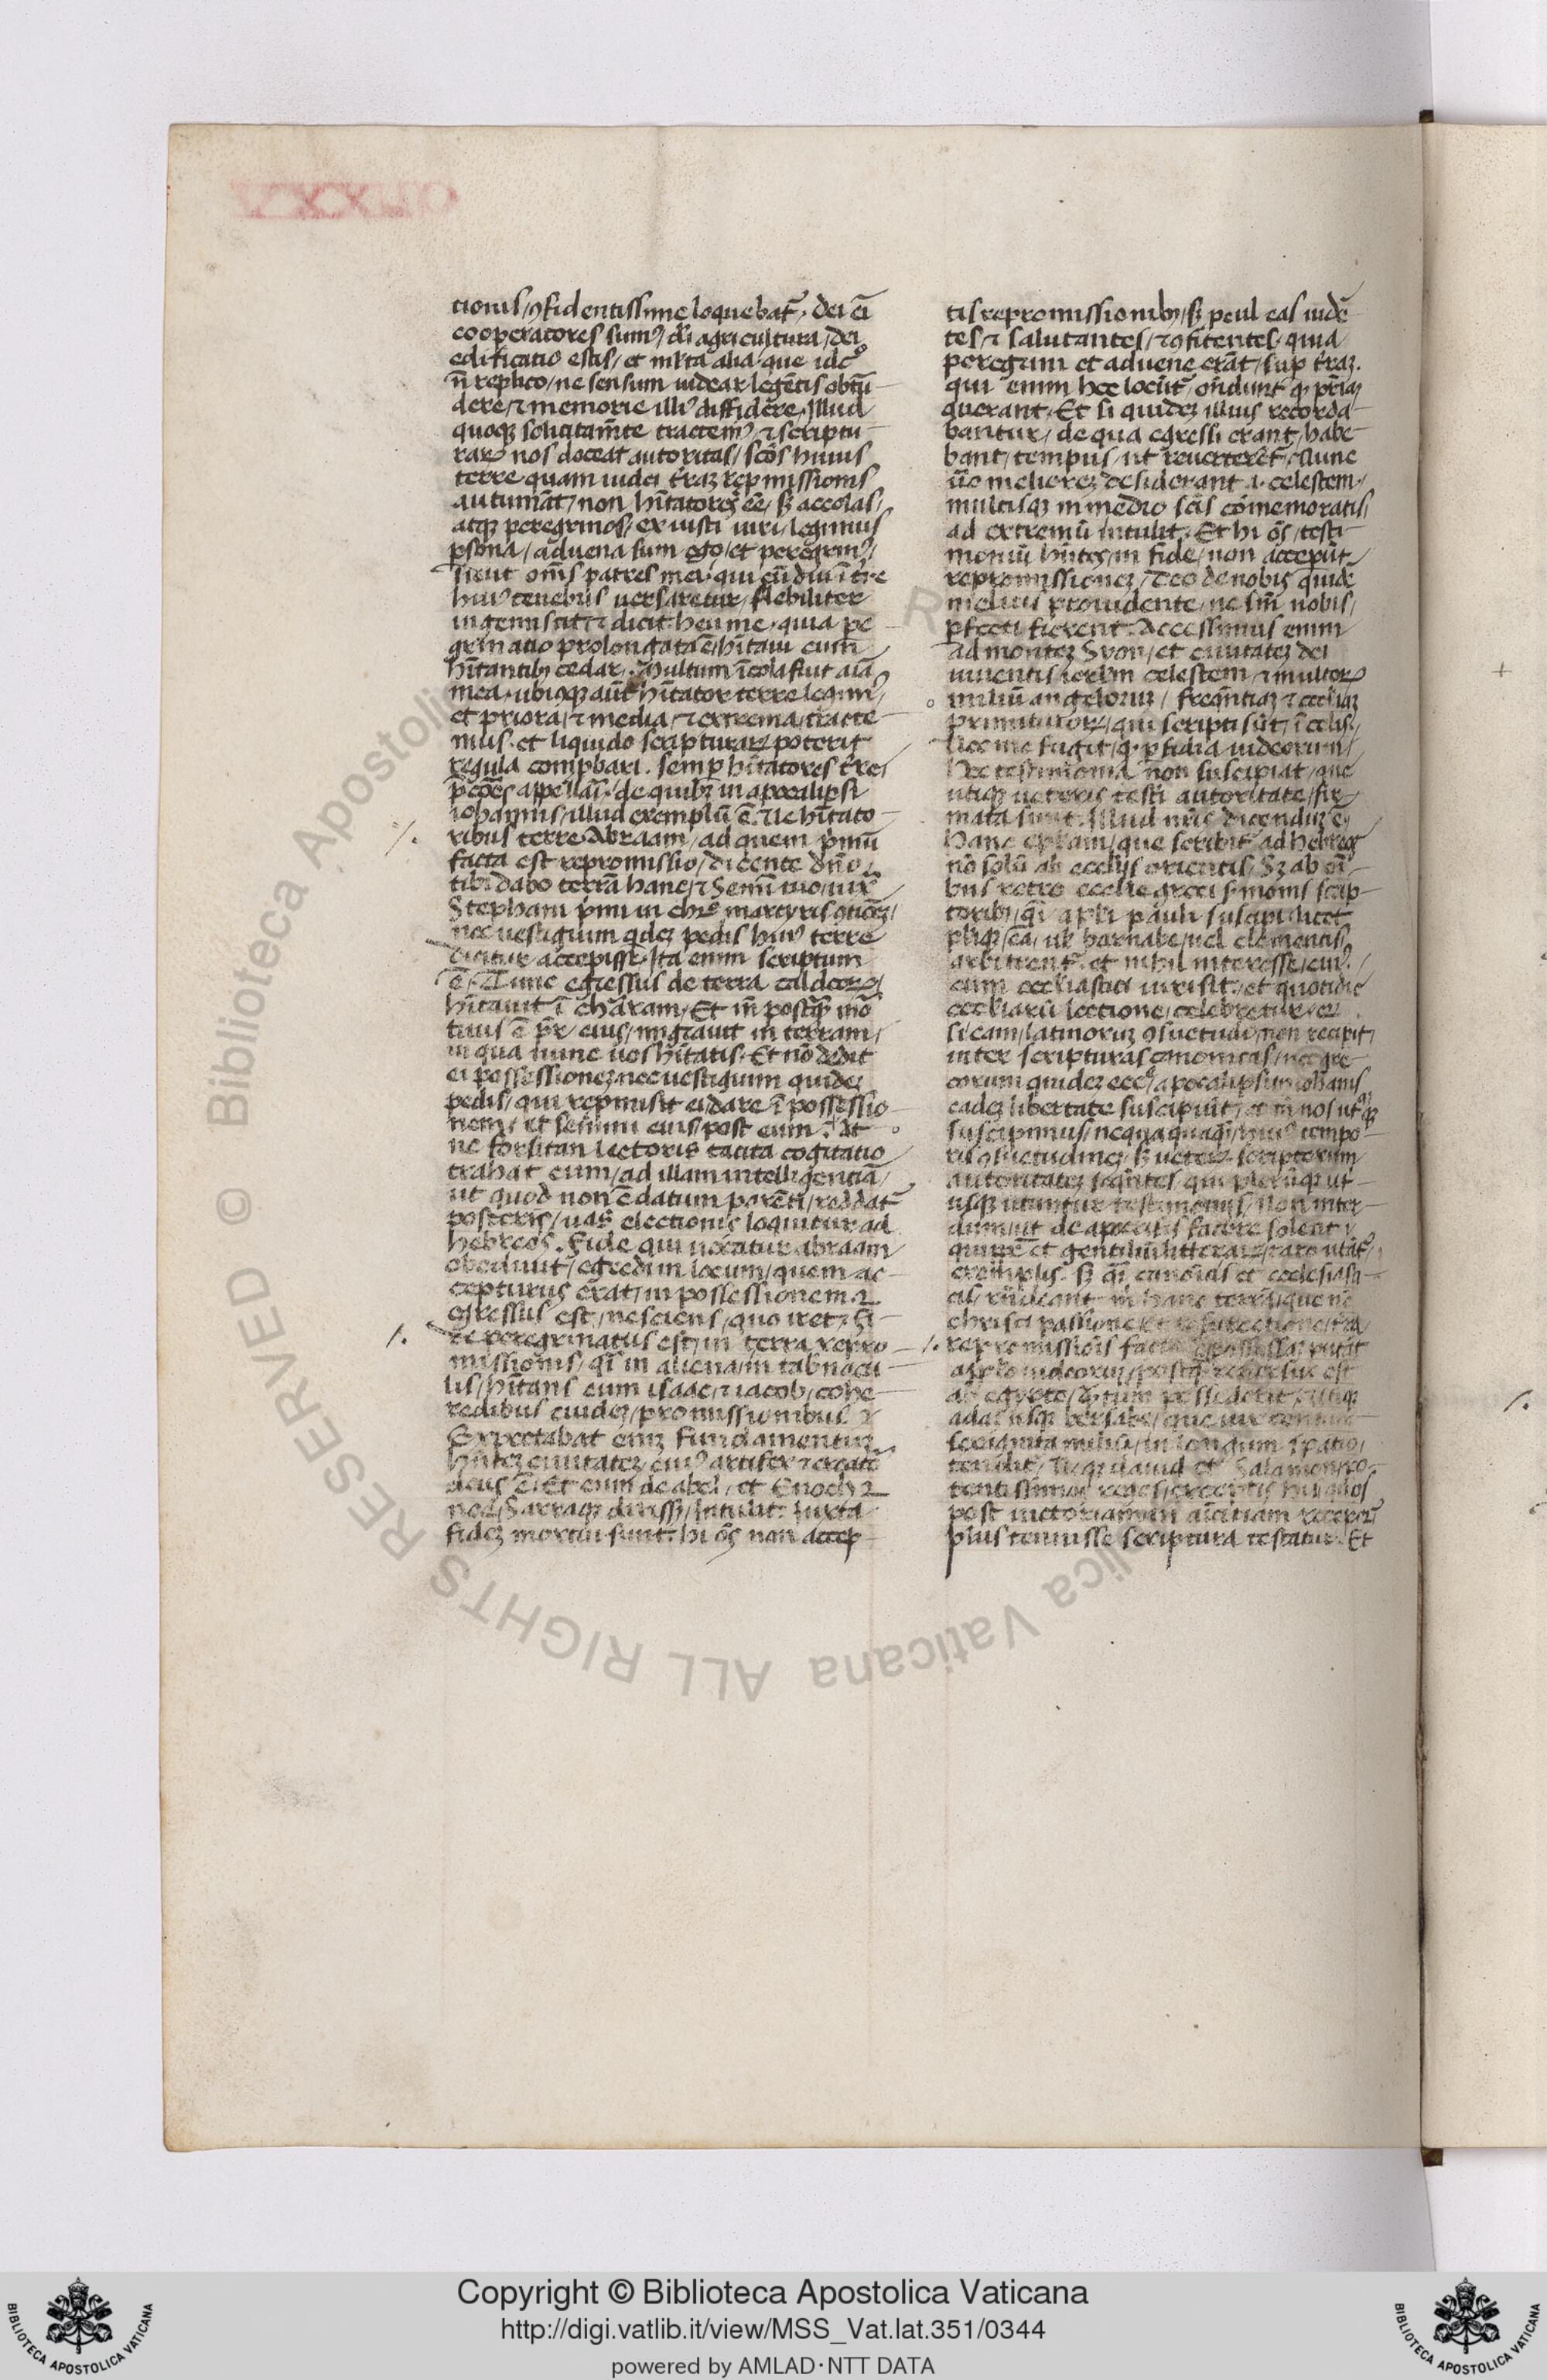 tionis/ ꝯfidentissime loquebat᷑. Dei ei
cooperatores sumꝰ/ di agricultura/ dei
edificatio estis/ et mlta alia. que idco
n̄ replico/ ne sensum uidear legētis obtū
dere/ ⁊ memorie illiꝰ diffidere/ Illud
quoqꝫ solicitam̄te tractemꝰ/ ⁊ scriptu
raꝝ nos doceat autoritas/ scōs huius
terre quam iudei t̄raꝫ repmissionis
autumāt/ non hītatores eē/ sꝫ accolas/
atqꝫ peregrinos/ ex iusti uiri/ legimus
psona/ aduena sum ego/ et peregrinꝰ/
sicut om̄s patres mei. qui cū diu ī t̄re
huiꝰ tenebris uersaretur/ flebiliter
ingemiscit/ ⁊ dicit. heu me. quia pe
grinatio prolongata ē/ hītaui cum
hītantibꝫ cedar. Multum īcola fuit aīa
mea. ubicūqꝫ aūt hītator terre legimꝰ/
et priora/ ⁊ media/ ⁊ extrema/ tracte
mus. et liquido scripturaꝝ poterit
regula compbari. semp hītatores t̄re/
pctōres appellari. de quibꝫ in apocalipsi
iohannis/ illud exemplū ē. Ue hītato
ribus terre Abraam/ ad quem pimū
facta est repromissio/ dicente dn̄o/
tibi dabo terrā hanc/ ⁊ semī tuo/ iux̄
Stephani pimi in chro martyris ꝯtiōeꝫ/
nec uestigium qdeꝫ pedis huiꝰ terre
dicitur accepisse. Ita enim scriptum
ē. Tunc egressus de terra caldeoꝝ/
hītauit ī charam/ Et in̄ postqꝫ mo
tuus ē pr̄ eius/ migrauit in terram/
in qua nunc uos hītatis. Et nō dedit
ei possessioneꝫ nec uestigium quideꝫ
pedis/ qui repmisit ei dare ī possessio
nem/ et semini eius/ post eum. At
ne forsitan lectoris tacita cogitatio
trahat eum/ ad illam intelligentiā/
ut quod non ē datum parēti/ reddat᷑
posteris/ uas electionis loquitur ad
hebreos. Fide qui uocatur abraam
obediuit/ egredi in locum/ quem ac
cepturus erat/ in possessionem. ⁊
egressus est/ nesciens/ quo iret/ Fi
de peregrinatus est/ in terra repro
missionis/ qi in aliena/ in tabnacu
lis/ hītans cum isaac/ ⁊ iacob/ cohe
redibus eiusdeꝫ/ promissionibus ⁊
Expectabat eniꝫ fundamentuꝫ
hn̄teꝫ ciuitateꝫ/ cuiꝰ artifex ⁊ creator
deus ē. Et cum de abel/ et Enoch ⁊
noe/ Sarraqꝫ dixissꝫ/ Intulit. Iuxta
fideꝫ mortui sunt. hi oēs non accep
tis repromissionibꝫ/ sꝫ pcul eas uidē
tes/ ⁊ salutantes/ ⁊ ꝯfitentes. quia
peregrini et aduene erāt/ sup t̄raꝫ.
qui enim hec locūt᷑/ ondunt qꝫ priaꝫ
querant. Et si quideꝫ illius recorda
bantur/ de qua egressi erant/ habe
bant/ tempus/ ut reuerterēt᷑. Nunc
ūo melioreꝫ desiderant .i. celestem.
multisqꝫ in medio scīs cōmemoratis/
ad extremū intulit. Et hi oēs/ testi
moniū hn̄tes/ in fide/ non accepūt
repromissioneꝫ/ Deo de nobis quidē
melius prouidente/ ne sin̄ nobis/
pfecti fierent. Accessimus enim
ad monteꝫ Syon/ et ciuitateꝫ dei
uiuentis ierlm celestem/ ⁊ multoꝝ
miliū angeloruꝫ/ frequētiaꝫ ⁊ eccliaꝫ
primitiuoꝝ/ qui scripti sūt/ ī celis/
Nec me fugit/ qꝫ pfidia iudeorum/
hec testimonia non suscipiat/ que
utiqꝫ ueteris testi autoritate/ fir
mata sunt. Illud nr̄is dicenduꝫ ē/
hanc eplam/ que scribit᷑ ad hebreos
nō solū ab eccliis orientis/ Sꝫ ab oī
bus retro ecclie greci sermonis scrip
toribꝫ/ qi apli pauli suscipi licet
pliqꝫ eā/ ul barnabe/ uel clementis/
arbitrent᷑. et nihil interesse/ cuiꝰ/
cum eccliastici uiri sit/ et quotidie
eccliarū lectione/ celebretur. Qꝫ
si eam/ latinoruꝫ ꝯsuetudo/ non recipit/
inter scripturas canonicas/ nec gre
corum quideꝫ eccē/ apocalipsim iohanis
eadeꝫ libertate suscipiūt/ et tn̄ nos utqꝫ
suscipimus/ nequaquaqꝫ/ huiꝰ tempo
ris ꝯsuetudineꝫ/ sꝫ ueteꝝ scriptorum
autoritateꝫ seqn̄tes/ qui plerūqꝫ ut
usqꝫ utuntur testimoniis/ Non inter
dum/ ut de apocrifis facere solent/
quippe et gentiliū litteraꝝ/ raro utāt᷑/
exemplis. Sꝫ qi canōicis et ecclesiasti
cis/ Rn̄deant mi hanc terrā/ que nc̄
christi passione et resurrectione/ t̄ra/
repromissiōis facta possessaꝫ putat
applo iudeoruꝫ/ postqꝫ regressus est
ab egypto/ qntum possiderit/ utiqꝫ
a dan usqꝫ bersabe/ que uix centum
sexaginta miliū/ in longum spatio/
tendit. Neqꝫ dauid et Salamon/ po
tentissimos reges/ exceptis his/ quos
post uictoriam in amicitiam receper᷑t
plus tenuisse scriptura testatur. Et
Copyright © Biblioteca Apostolica Vaticana
http://digi.vatlib.it/view/MSS_Vat.lat.351/0344
powered by AMLAD·NTT DATA